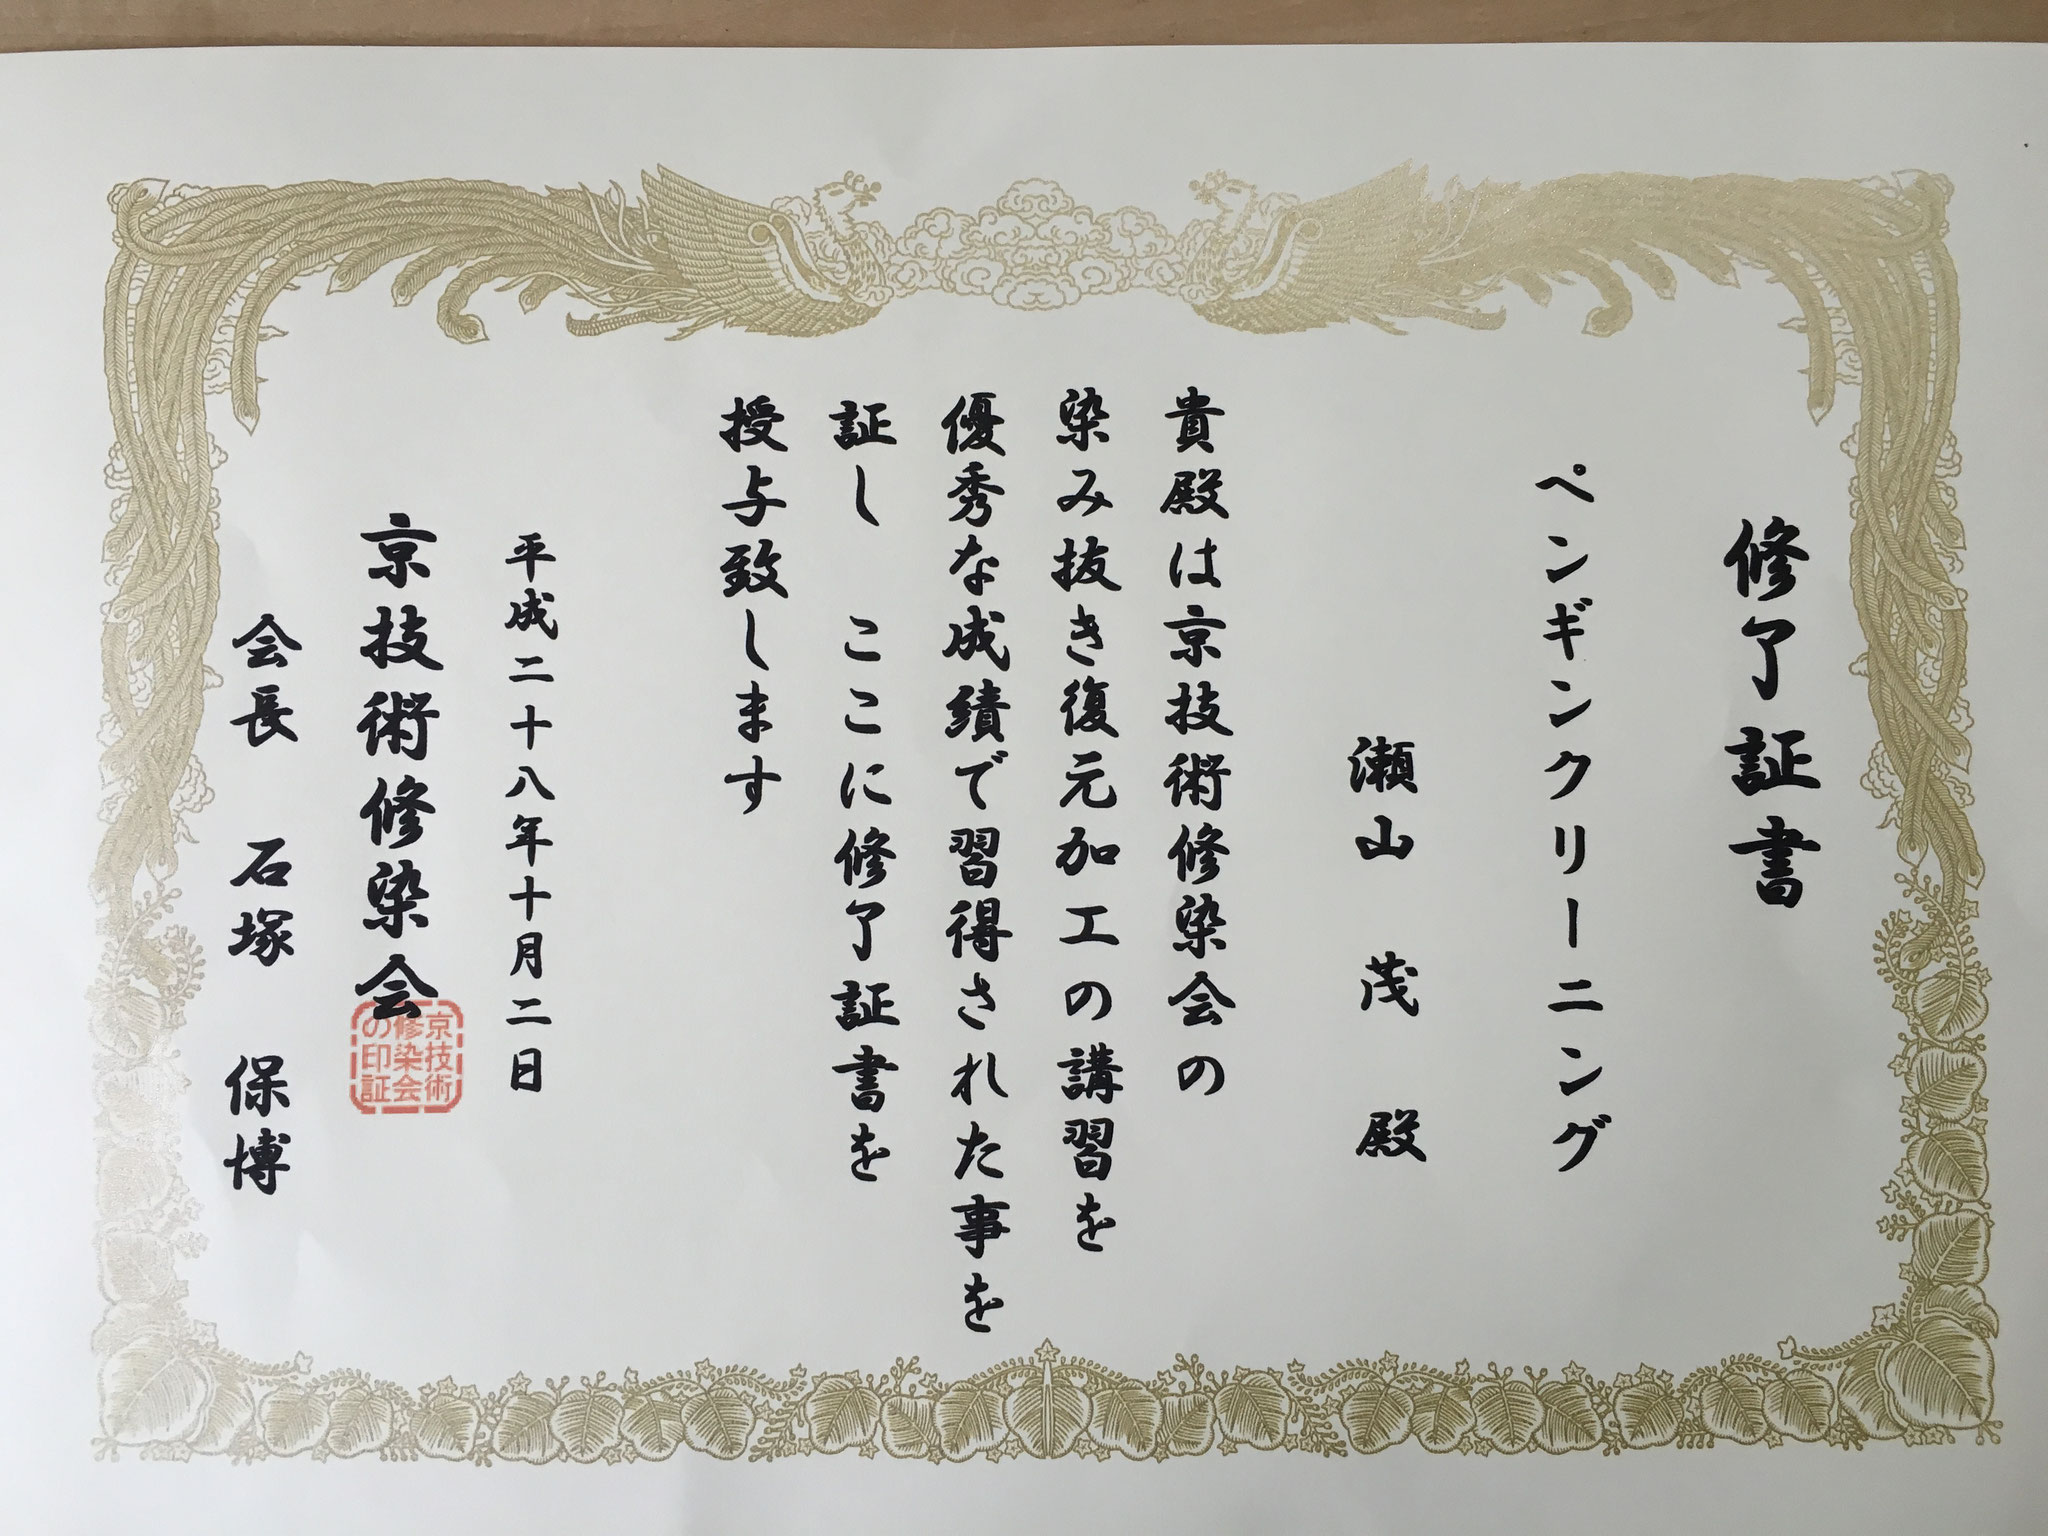 修了証書
ペンギンクリーニング
瀬山 茂 殿
貴殿は京技術修染会の
染み抜き復元加工の講習を
優秀な成績で習得された事を
証し ここに修了証書を
授与致します
平成二十八年十月二日
京技術修染会
京技術
修染会
の印証
会長 石塚 保博